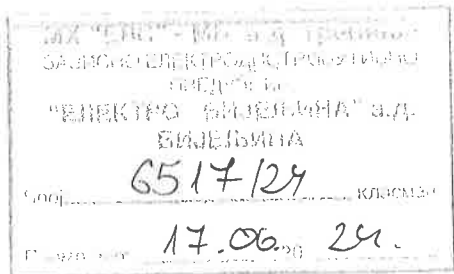 МХ "ЕРС" - МП а.д. Требиње
ЗАВИСНО ЕЛЕКТРОДИСТРИБУТИВНО
ПРЕДУЗЕЋЕ
"ЕЛЕКТРО - БИЈЕЉИНА" а.д.
БИЈЕЉИНА
Број 6517/24
17.06. 20 24.